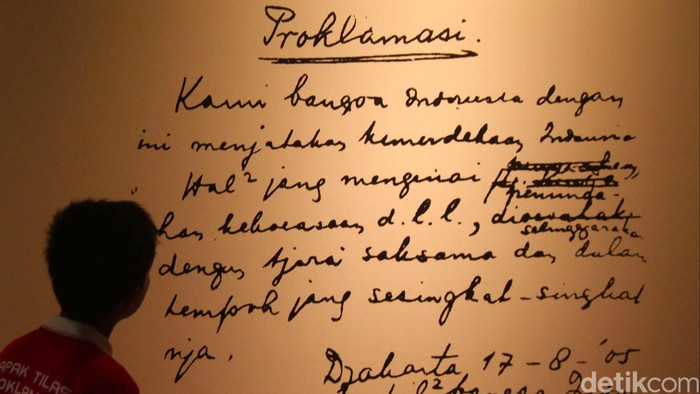 Proklamasi.
Kami bangsa Indonesia dengan
ini menjatakan kemerdekaan Indonesia
Hal² jang mengenai peminda-
han kekoeasaan d.l.l., diselenggarakan
dengan tjara saksama dan dalam
tempoh jang sesingkat-singkat
nja.
Djakarta 17-8-'05
bangsa
APAK TILAS
OKLAM
detikcom